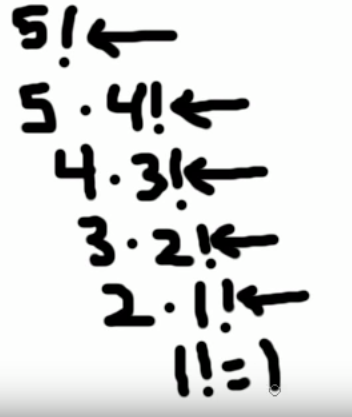 5! ←
5 · 4! ←
4 · 3! ←
3 · 2! ←
2 · 1! ←
1! = 1